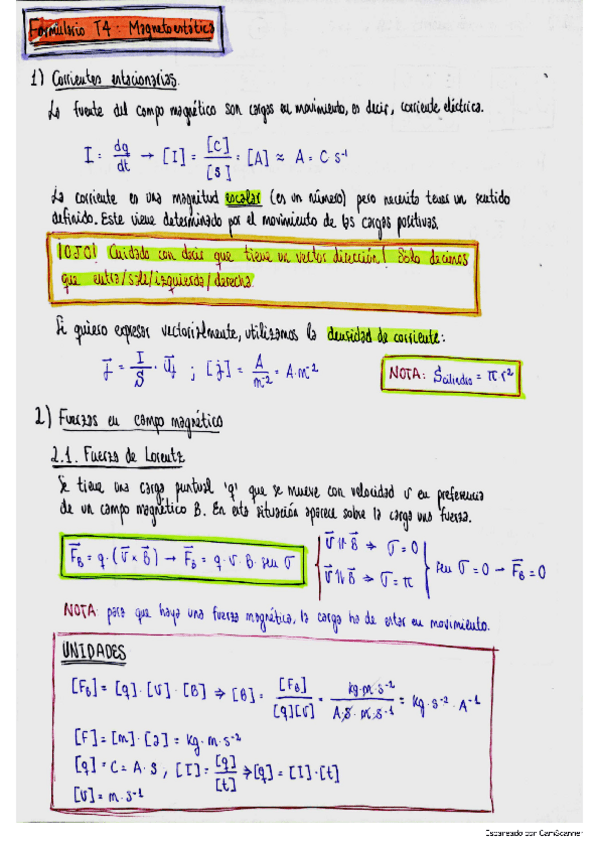 Formulario T4: Magnetoestática
1) Corrientes estacionarias.
La fuente del campo magnético son cargas en movimiento, es decir, corriente eléctrica.
I = dq/dt → [I] = [C]/[S] = [A] ≈ A = C s⁻¹
La corriente es una magnitud escalar (es un número) pero necesita tener un sentido
definido. Este viene determinado por el movimiento de las cargas positivas.
¡OJO! Cuidado con decir que tiene un vector dirección! Solo decimos
que entra/sale/izquierda/derecha.
Si quiero expresar vectorialmente, utilizamos la densidad de corriente:
j⃗ = I/S · u⃗j ; [j] = A/m⁻² = A·m⁻²
NOTA: Scilindro = π r²
2) Fuerzas en campo magnético
2.1. Fuerza de Lorentz
Se tiene una carga puntual 'q' que se mueve con velocidad v en preferencia
de un campo magnético B. En esta situación aparece sobre la carga una fuerza.
F⃗B = q · (v⃗ × B⃗) → F⃗B = q · v · B · sen σ
v⃗ ∥ B⃗ ⇒ σ = 0
v⃗ ∥ B⃗ ⇒ σ = π
sen σ = 0 → F⃗B = 0
NOTA: para que haya una fuerza magnética, la carga ha de estar en movimiento.
UNIDADES
[FB] = [q] · [v] · [B] ⇒ [B] = [FB]/[q][v] = kg·m·s⁻²/A·s·m·s⁻¹ = kg·s⁻²·A⁻¹
[F] = [m] · [a] = kg·m·s⁻²
[q] = C = A·s , [I] = [q]/[t] ⇒ [q] = [I]·[t]
[v] = m·s⁻¹
Escaneado con CamScanner